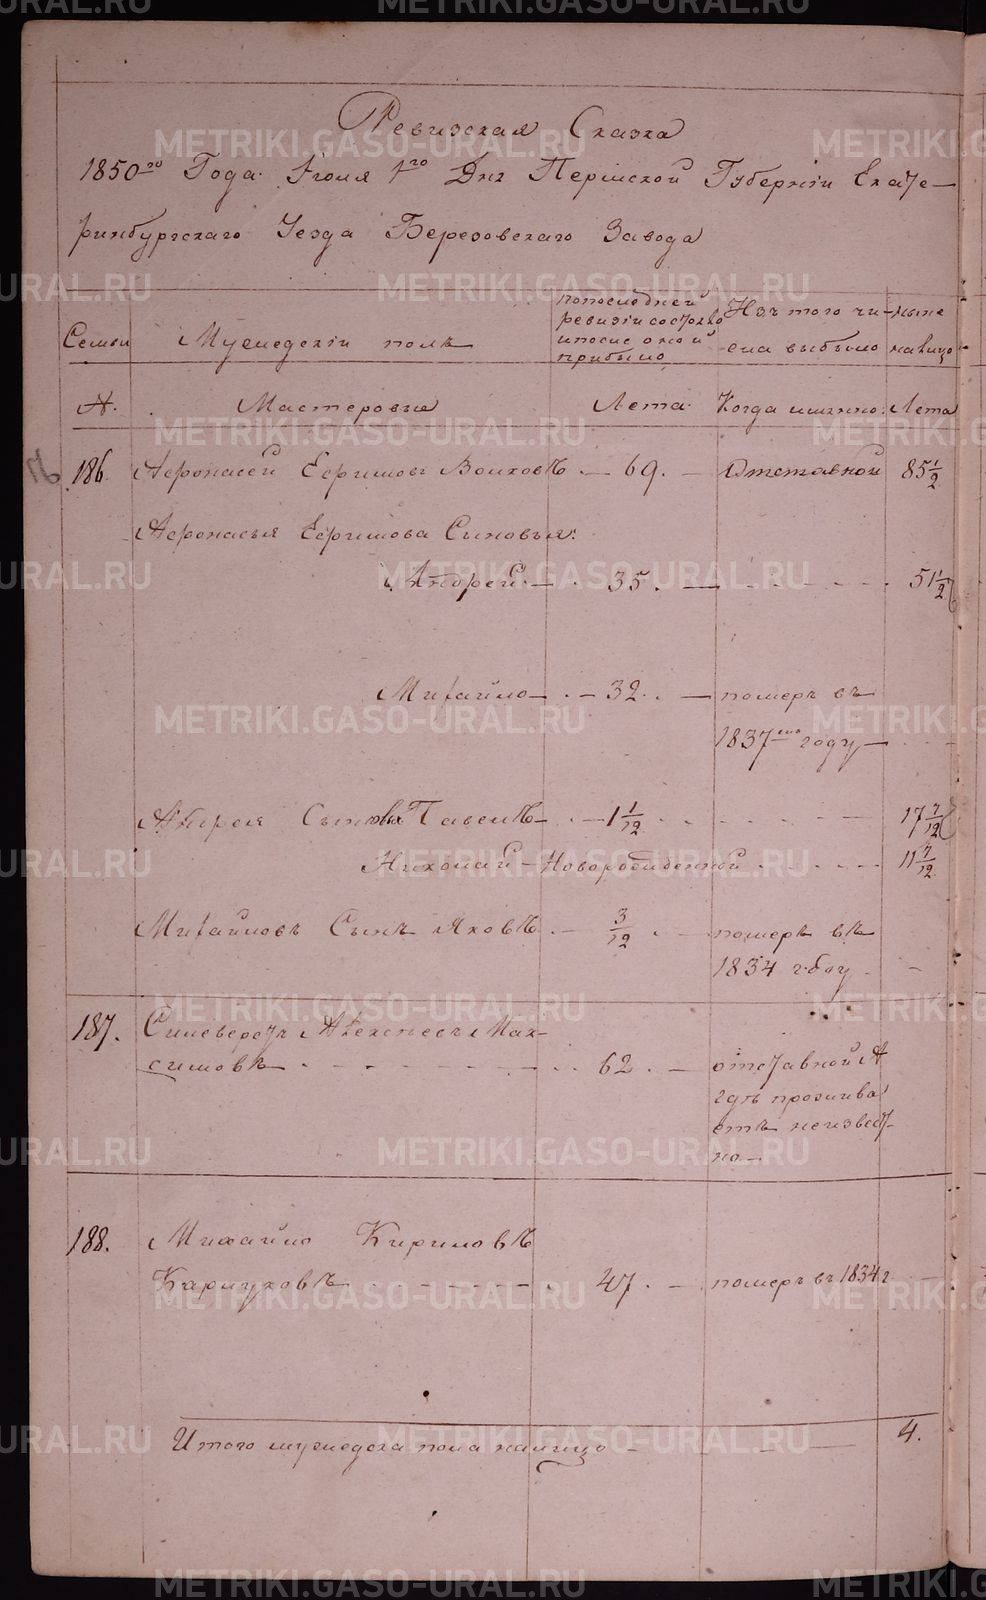 Ревизская Сказка
1850го Года Iюля 1го Дня Пермской Губернiи Екате-
ринбургскаго Уезда Березовскаго Завода
Семьи
Мужескiй полъ
попоследней ревизiи состояло ипосле оной прибыло
Изъ того чи-
сла выбыло
ныне налицо
Мастеровые Лета Когда имянно Лета
186. Афонасей Ефимовъ Волковъ — 69. — Отставной 85 1/2
Афонасья Ефимова Сыновья:
Андрей — 35. — 51 1/2
Михайло — 32. — померъ въ
1837мъ году —
Андрея Сыновья Павелъ — 1 1/12 17 7/12
Николай — Новорожденной 11 7/12
Михайловъ Сынъ Яковъ — 3/12 — померъ въ
1834 году —
187. Силеверстъ Алексеевъ Мак-
симовъ — 62. — отставной А
гдѣ прожива
етъ неизвест-
но —
188. Михайло Кириловъ
Кармуковъ — 47. — померъ въ 1834 г —
Итого мужеска пола налицо — 4.
METRIKI.GASO-URAL.RU